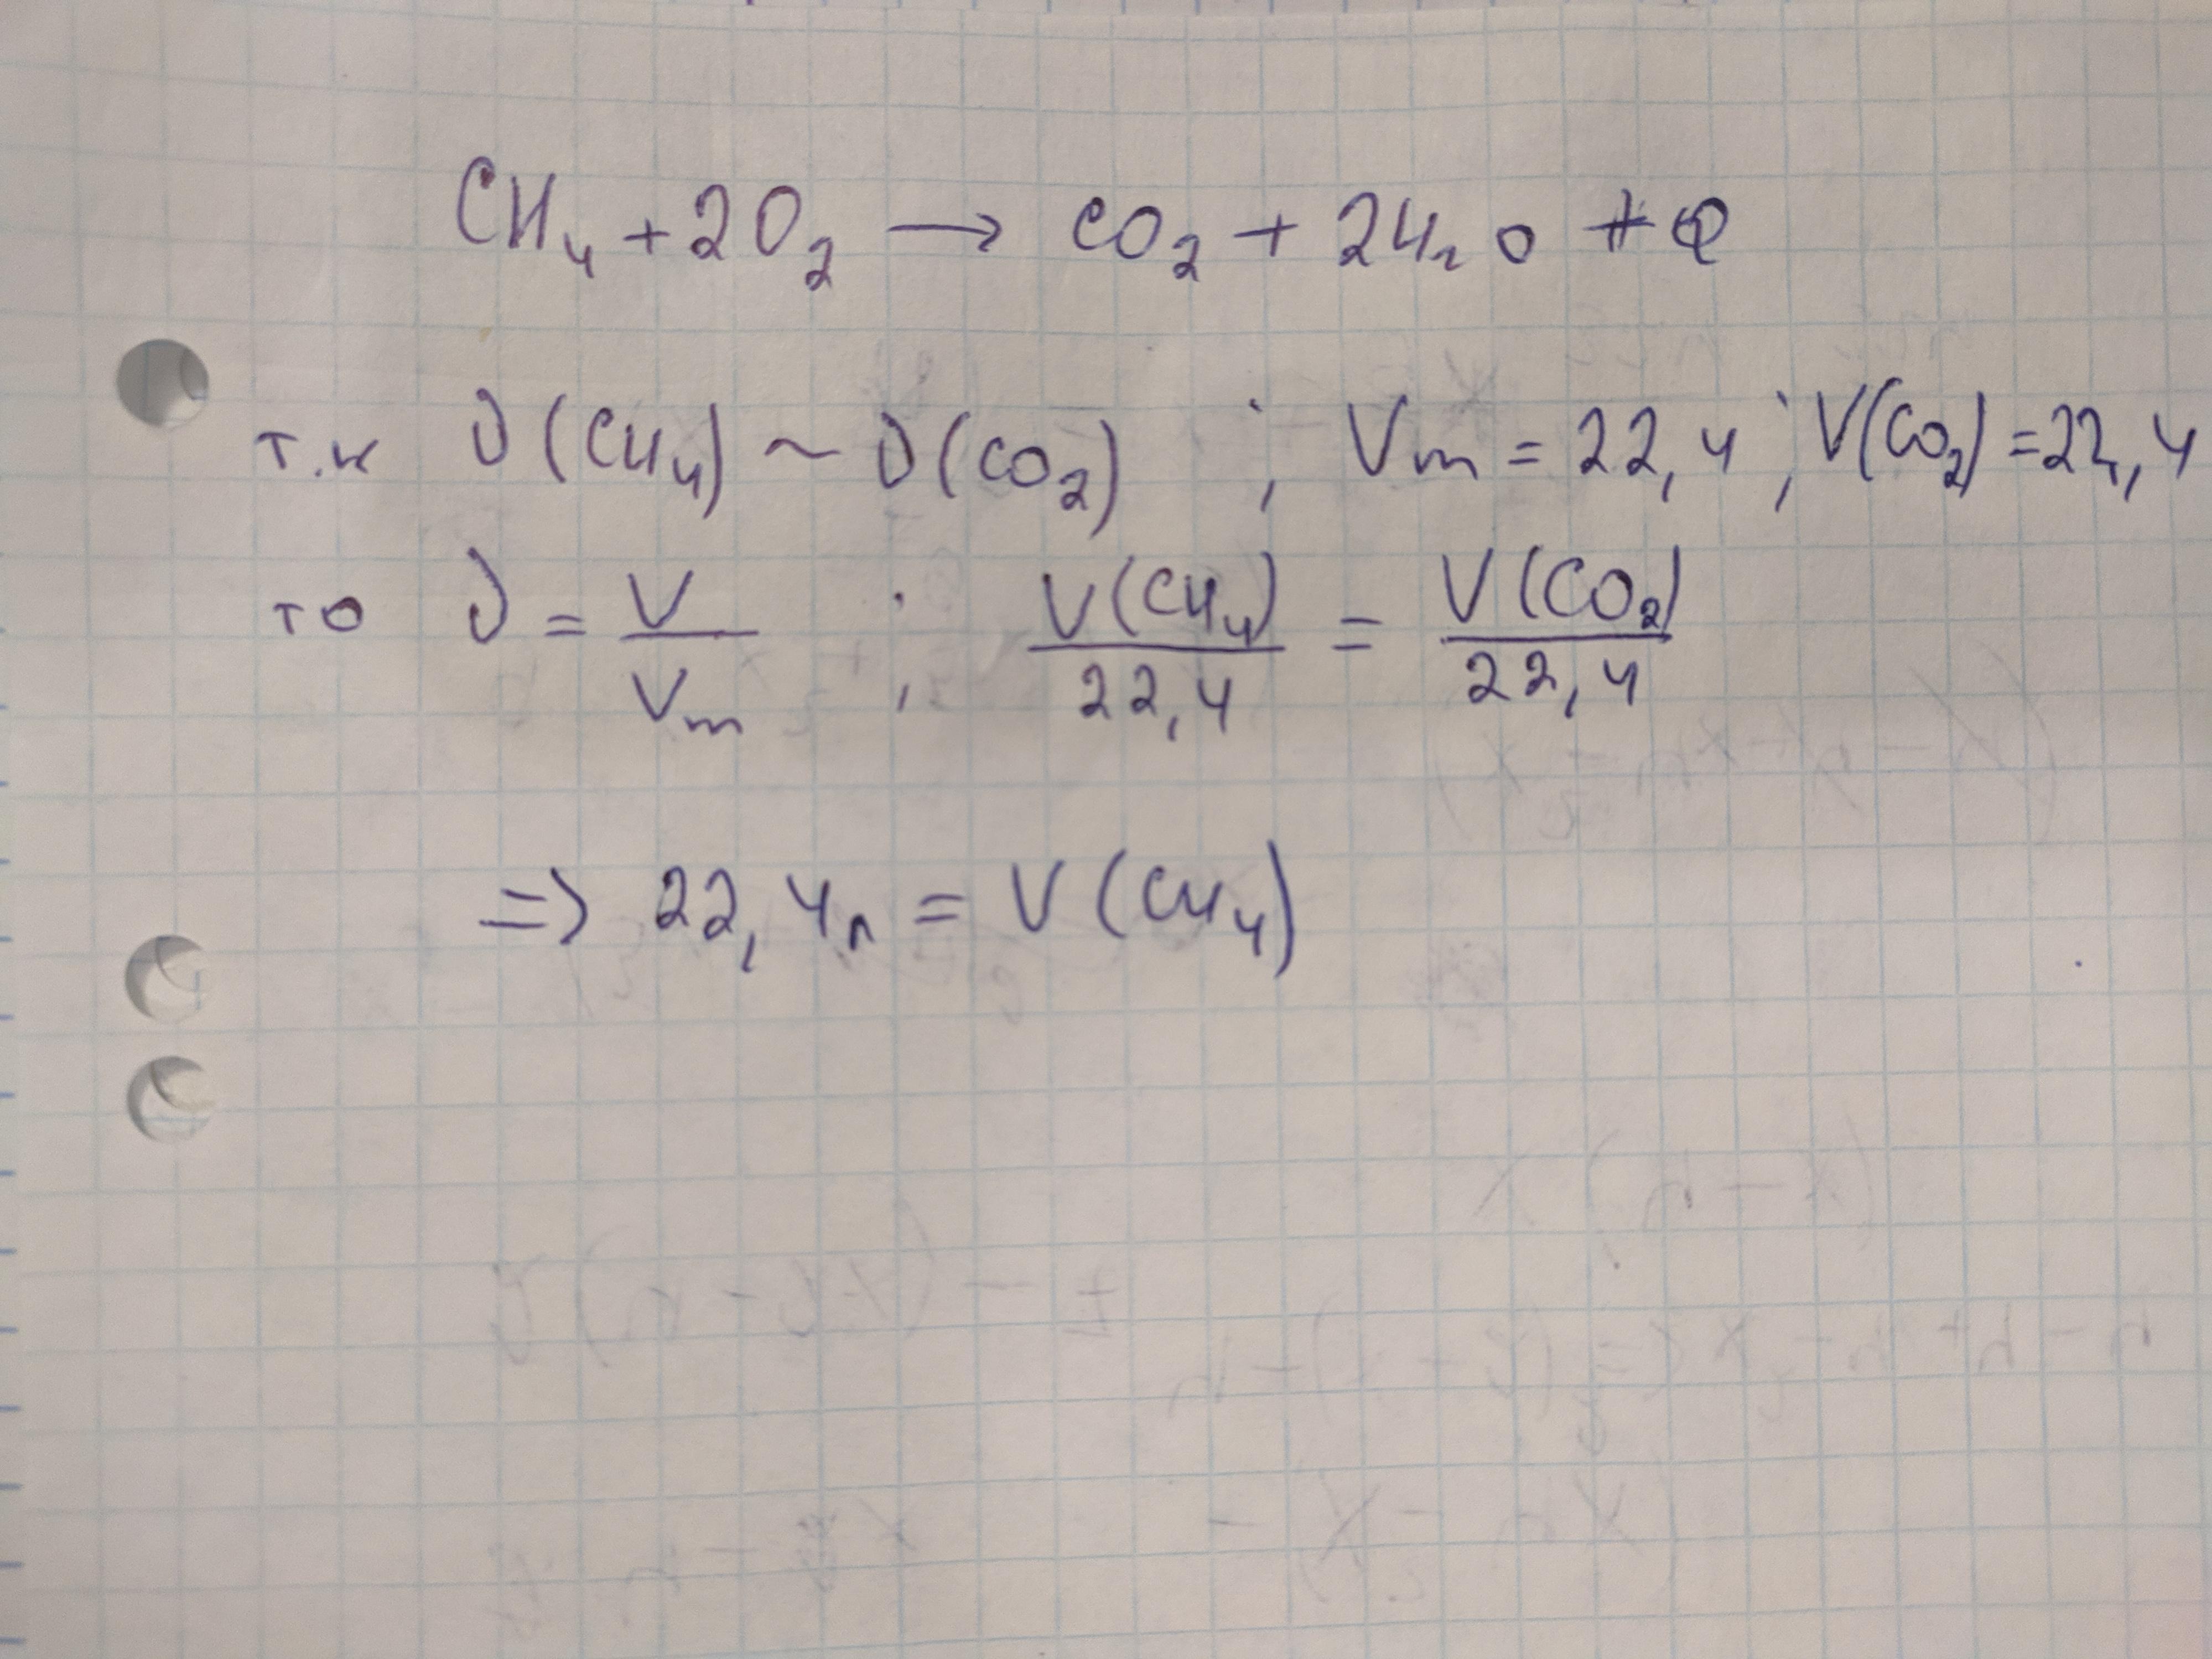 CH₄ + 2O₂ → CO₂ + 2H₂O + Q
т.к ν(CH₄) ~ ν(CO₂) ; Vm = 22,4 ; V(CO₂) = 22,4
то ν = V/Vm ; V(CH₄)/22,4 = V(CO₂)/22,4
=> 22,4л = V(CH₄)